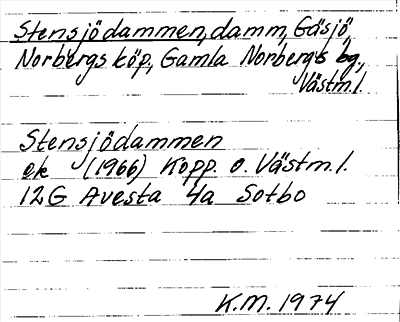 Stensjödammen, damm, Gåsjö,
Norbergs köp, Gamla Norbergs bg,
Västm.l.
Stensjödammen
ek (1966) Kopp. o. Västm.l.
12G Avesta 4a Sotbo
K.M. 1974